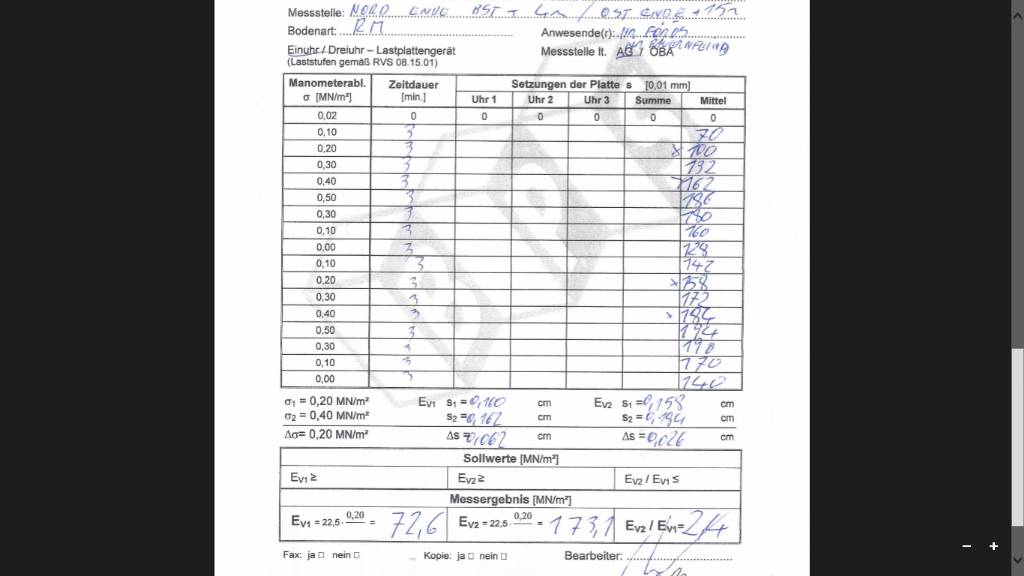 Messstelle: NORD ENDE BST + 4m / OST ENDE + 15m
Bodenart: RM Anwesende(r):
Einuhr / Dreiuhr – Lastplattengerät Messstelle lt. AG / ÖBA
(Laststufen gemäß RVS 08.15.01)
Manometerabl. Zeitdauer Setzungen der Platte s [0,01 mm]
σ [MN/m²] [min.] Uhr 1 Uhr 2 Uhr 3 Summe Mittel
0,02 0 0 0 0 0 0
0,10 3 70
0,20 3 x 100
0,30 3 132
0,40 3 x 162
0,50 3 186
0,30 3 180
0,10 3 160
0,00 3 128
0,10 3 142
0,20 3 x 158
0,30 3 172
0,40 3 x 184
0,50 3 194
0,30 3 190
0,10 3 170
0,00 3 140
σ1 = 0,20 MN/m² EV1 s1 = 0,100 cm EV2 s1 = 0,158 cm
σ2 = 0,40 MN/m² s2 = 0,162 cm s2 = 0,184 cm
Δσ= 0,20 MN/m² Δs = 0,062 cm Δs = 0,026 cm
Sollwerte [MN/m²]
EV1 ≥ EV2 ≥ EV2 / EV1 ≤
Messergebnis [MN/m²]
EV1 = 22,5· 0,20 = 72,6 EV2 = 22,5· 0,20 = 173,1 EV2 / EV1= 2,4
Fax: ja □ nein □ Kopie: ja □ nein □ Bearbeiter: